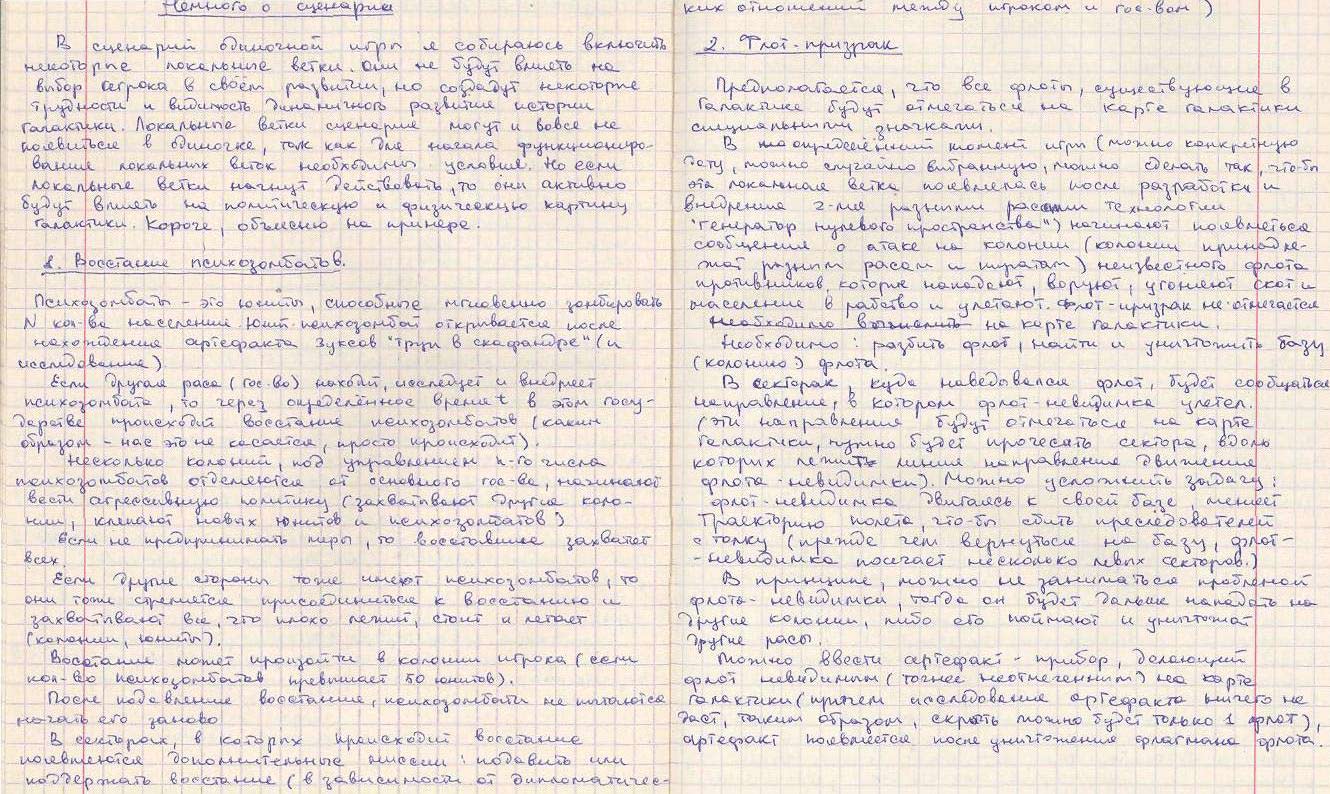 Немного о сценарии
В сценарий одиночной игры я собираюсь включить
некоторые локальные ветки. Они не будут влиять на
выбор игрока в своём развитии, но создадут некоторые
трудности и видимость динамичного развития истории
галактики. Локальные ветки сценария могут и вовсе не
появиться в одиночке, так как для начала функциониро-
вания локальных веток необходимы условия. Но если
локальные ветки начнут действовать, то они активно
будут влиять на политическую и физическую картину
галактики. Короче, объясню на примере.
1. Восстание психозомбатов.
Психозомбаты - это юниты, способные мгновенно зомбировать
N кол-ва населения. Юнит-психозомбат открывается после
нахождения артефакта Зуксов "труп в скафандре" (и
исследования).
Если другая раса (гос-во) находит, исследует и внедряет
психозомбата, то через определённое время t в этом госу-
дарстве происходит восстание психозомбатов (каким
образом - нас это не касается, просто происходит).
Несколько колоний, под управлением n-го числа
психозомбатов отделяются от основного гос-ва, начинают
вести агрессивную политику (захватывают другие коло-
нии, клепают новых юнитов и психозомбатов)
Если не предпринимать меры, то восставшие захватят
всех.
Если другие стороны тоже имеют психозомбатов, то
они тоже стремятся присоединиться к восстанию и
захватывают всё, что плохо лежит, стоит и летает
(колонии, юниты).
Восстание может произойти в колонии игрока (если
кол-во психозомбатов превышает 50 юнитов).
После подавления восстания, психозомбаты не пытаются
начать его заново
В секторах, в которых происходит восстание
появляются дополнительные миссии: подавить или
поддержать восстание (в зависимости от дипломатичес-
ких отношений между игроком и гос-вом)
2. Флот-призрак
Предполагается, что все флоты, существующие в
галактике будут отмечаться на карте галактики
специальными значками.
В определённый момент игры (можно конкретную
дату, можно случайно выбранную, можно сделать так, что-бы
эта локальная ветка появлялась после разработки и
внедрения 2-мя разными расами технологии
"генератор нулевого пространства") начинают появляться
сообщения о атаке на колонии (колонии принадле-
жат разным расам и пиратам) неизвестного флота
противников, которые нападают, воруют, угоняют скот и
население в рабство и улетают. Флот-призрак не отмечается
на карте галактики.
Необходимо: разбить флот, найти и уничтожить базу
(колонию) флота.
В секторах, куда наведывался флот, будет сообщаться
направление, в котором флот-невидимка улетел.
(эти направления будут отмечаться на карте
галактики, нужно будет прочесать сектора, вдоль
которых лежит линия направления движения
флота-невидимки). Можно усложнить задачу:
флот-невидимка двигаясь к своей базе, меняет
траекторию полёта, что-бы сбить преследователей
с толку (прежде чем вернуться на базу, флот-
-невидимка посещает несколько левых секторов.)
В принципе, можно не заниматься проблемой
флота-невидимки, тогда он будет дальше нападать на
другие колонии, либо его поймают и уничтожат
другие расы.
Можно ввести артефакт-прибор, делающий
флот невидимым (точнее неотмеченным) на карте
галактики (причем исследование артефакта ничего не
даст, таким образом, скрыть можно будет только 1 флот),
артефакт появляется после уничтожения флагмана флота.